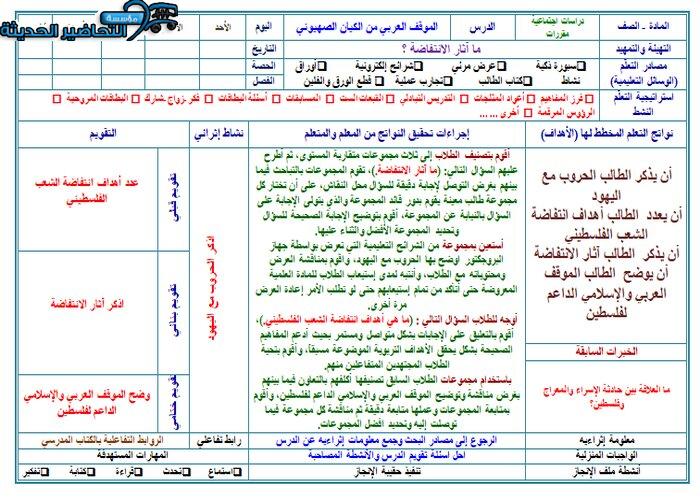 مؤسسة
التحاضير الحديثة
المادة – الصف
دراسات اجتماعية
مقررات
الدرس
الموقف العربي من الكيان الصهيوني
اليوم
الأحد
التهيئة والتمهيد
ما آثار الانتفاضة ؟
التاريخ
مصادر التعلم
(الوسائل التعليمية)
سبورة ذكية
عرض مرئي
شرائح إلكترونية
أوراق
الحصة
نشاط
كتاب الطالب
تجارب عملية
قطع الورق والفلين
الفصل
استراتيجية التعلم
النشط
فرز المفاهيم
أعواد المثلجات
التدريس التبادلي
القبعات الست
المسابقات
أسئلة البطاقات
فكر.زواج.شارك
البطاقات المروحية
الرؤوس المرقمة
أخرى ... ...
نواتج التعلم المخطط لها (الأهداف)
إجراءات تحقيق النواتج من المعلم والمتعلم
نشاط إثرائي
التقويم
أن يذكر الطالب الحروب مع
اليهود
أن يعدد الطالب أهداف انتفاضة
الشعب الفلسطيني
أن يذكر الطالب آثار الانتفاضة
أن يوضح الطالب الموقف
العربي والإسلامي الداعم
لفلسطين
الخبرات السابقة
ما العلاقة بين حادثة الإسراء والمعراج
وفلسطين؟
أقوم بتصنيف الطلاب إلى ثلاث مجموعات متقاربة المستوى، ثم أطرح
عليهم السؤال التالي: (ما آثار الانتفاضة.)، تقوم المجموعات بالتباحث فيما
بينهم بغرض التوصل لإجابة دقيقة للسؤال محل النقاش، على أن تختار كل
مجموعة طالب معينة يقوم بدور قائد المجموعة والذي يتولى الإجابة على
السؤال بالنيابة عن المجموعة، أقوم بتوضيح الإجابة الصحيحة للسؤال
وتحديد المجموعة الأفضل والثناء عليها.
أستعين بمجموعة من الشرائح التعليمية التي تعرض بواسطة جهاز
البروجكتور اوضح بها الحروب مع اليهود، وأقوم بمناقشة العرض
ومحتوياته مع الطلاب، وأنتبه لمدى إستيعاب الطلاب للمادة العلمية
المعروضة حتى أتأكد من تمام إستيعابهم حتى لو تطلب الأمر إعادة العرض
مرة أخرى.
أوجه للطلاب السؤال التالي : (ما هي أهداف انتفاضة الشعب الفلسطيني.)،
أقوم بالتعليق على الإجابات بشكل متواصل ومستمر بحيث أدعم المفاهيم
الصحيحة بشكل يحقق الأهداف التربوية الموضوعة مسبقاً، وأقوم بتحية
الطلاب المجتهدين المتفاعلين منهم.
باستخدام مجموعات الطلاب السابق تصنيفها أكلفهم بالتعاون فيما بينهم
بغرض مناقشة وتوضيح الموقف العربي والإسلامي الداعم لفلسطين، وأقوم
بمتابعة المجموعات وعملها متابعة دقيقة ثم مناقشة كل مجموعة فيما
توصلت إليه وتحديد افضل المجموعات.
اذكر الحروب مع اليهود
تقويم قبلي
عدد أهداف انتفاضة الشعب
الفلسطيني
تقويم بنائي
اذكر آثار الانتفاضة
تقويم ختامي
وضح الموقف العربي والإسلامي
الداعم لفلسطين
معلومة إثرائية
الرجوع إلى مصادر البحث وجمع معلومات إثرائيه عن الدرس
رابط تفاعلي
الروابط التفاعلية بالكتاب المدرسي
الواجبات المنزلية
احل اسئلة تقويم الدرس والأنشطة المصاحبة
المهارات المستهدفة
أنشطة ملف الإنجاز
تنفيذ حقيبة الإنجاز
استماع
تحدث
قراءة
كتابة
تفكير